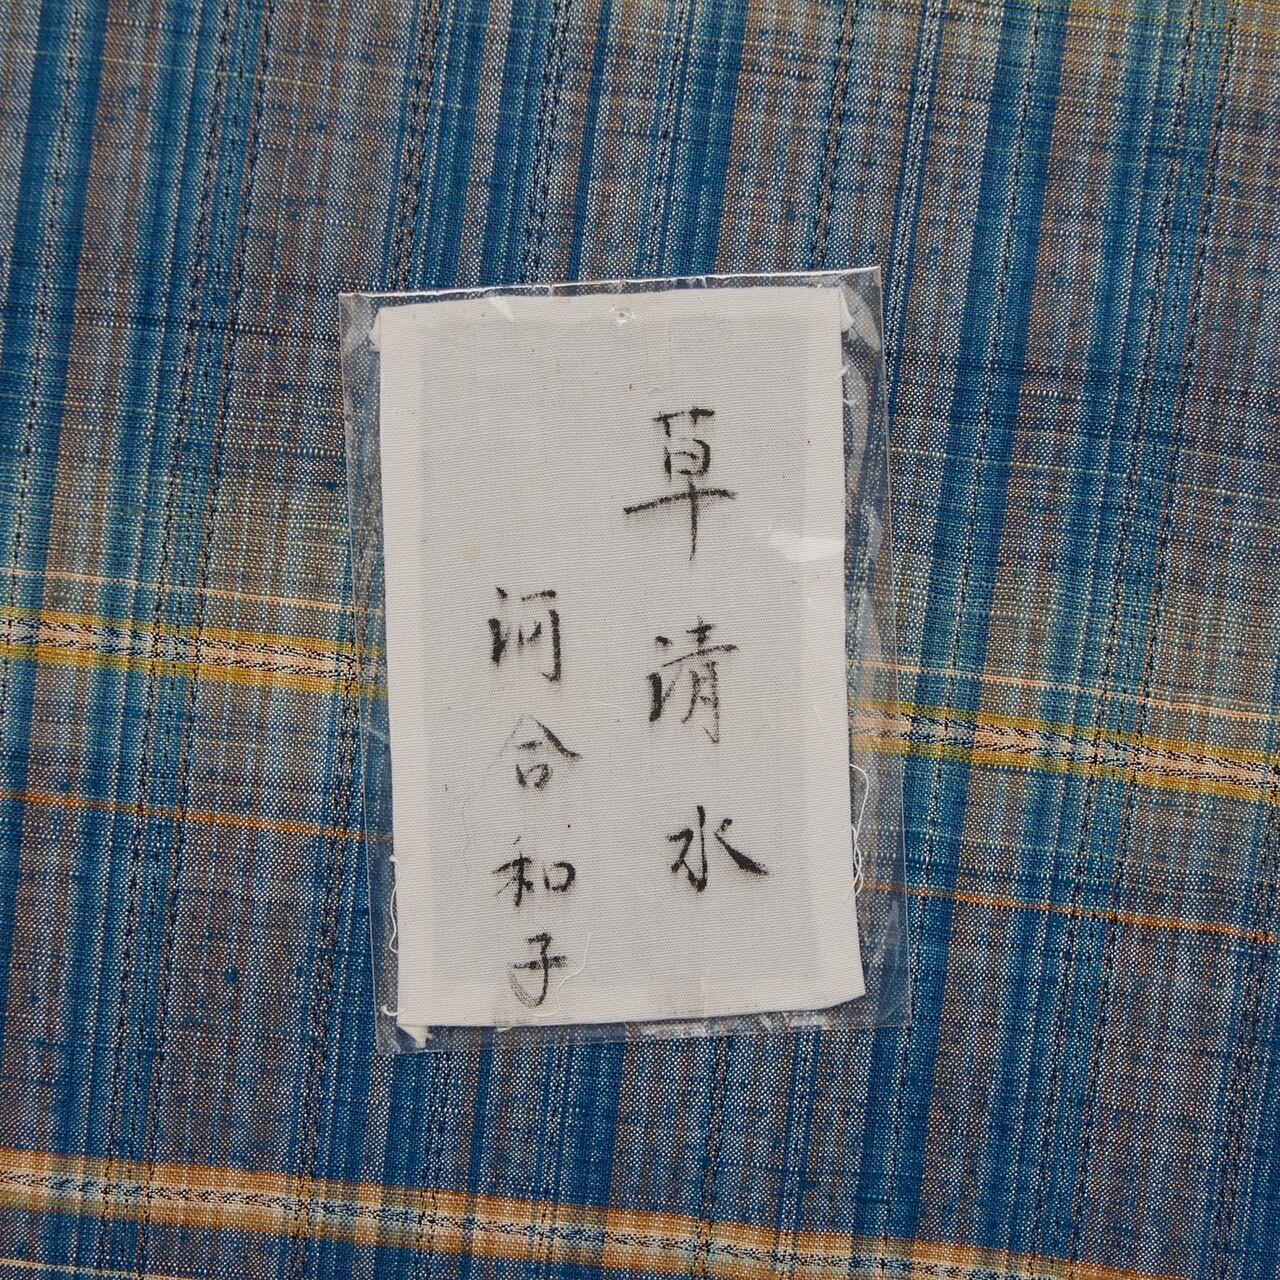 草清水
河合和子